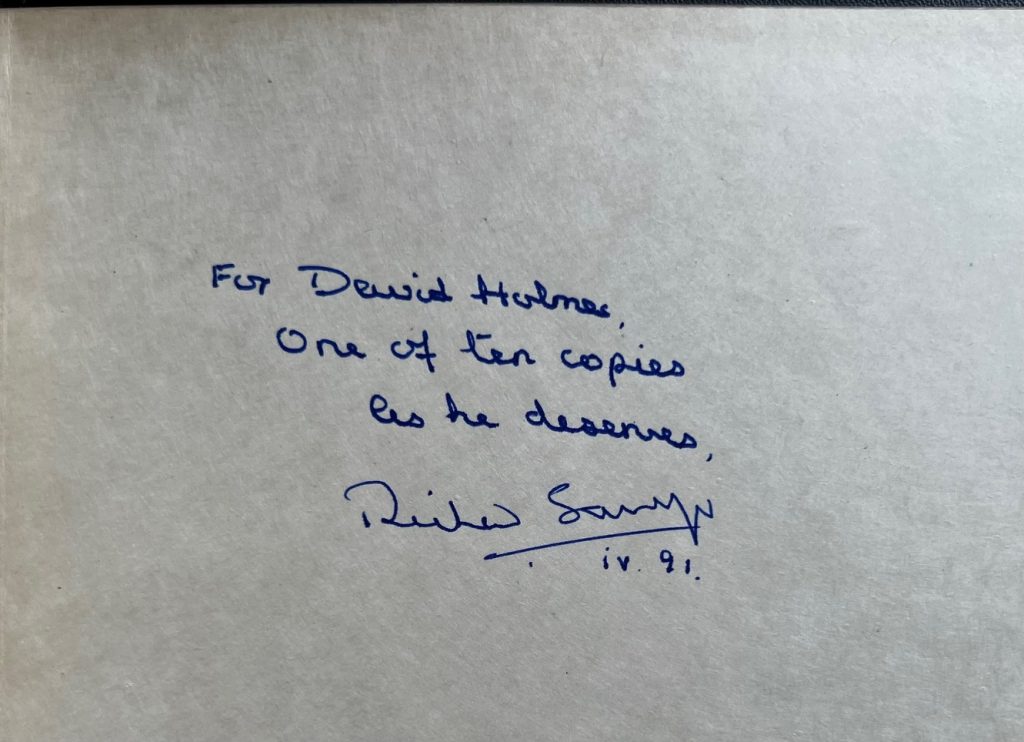 For David Holmes,
One of ten copies
as he deserves,
iv. 91.